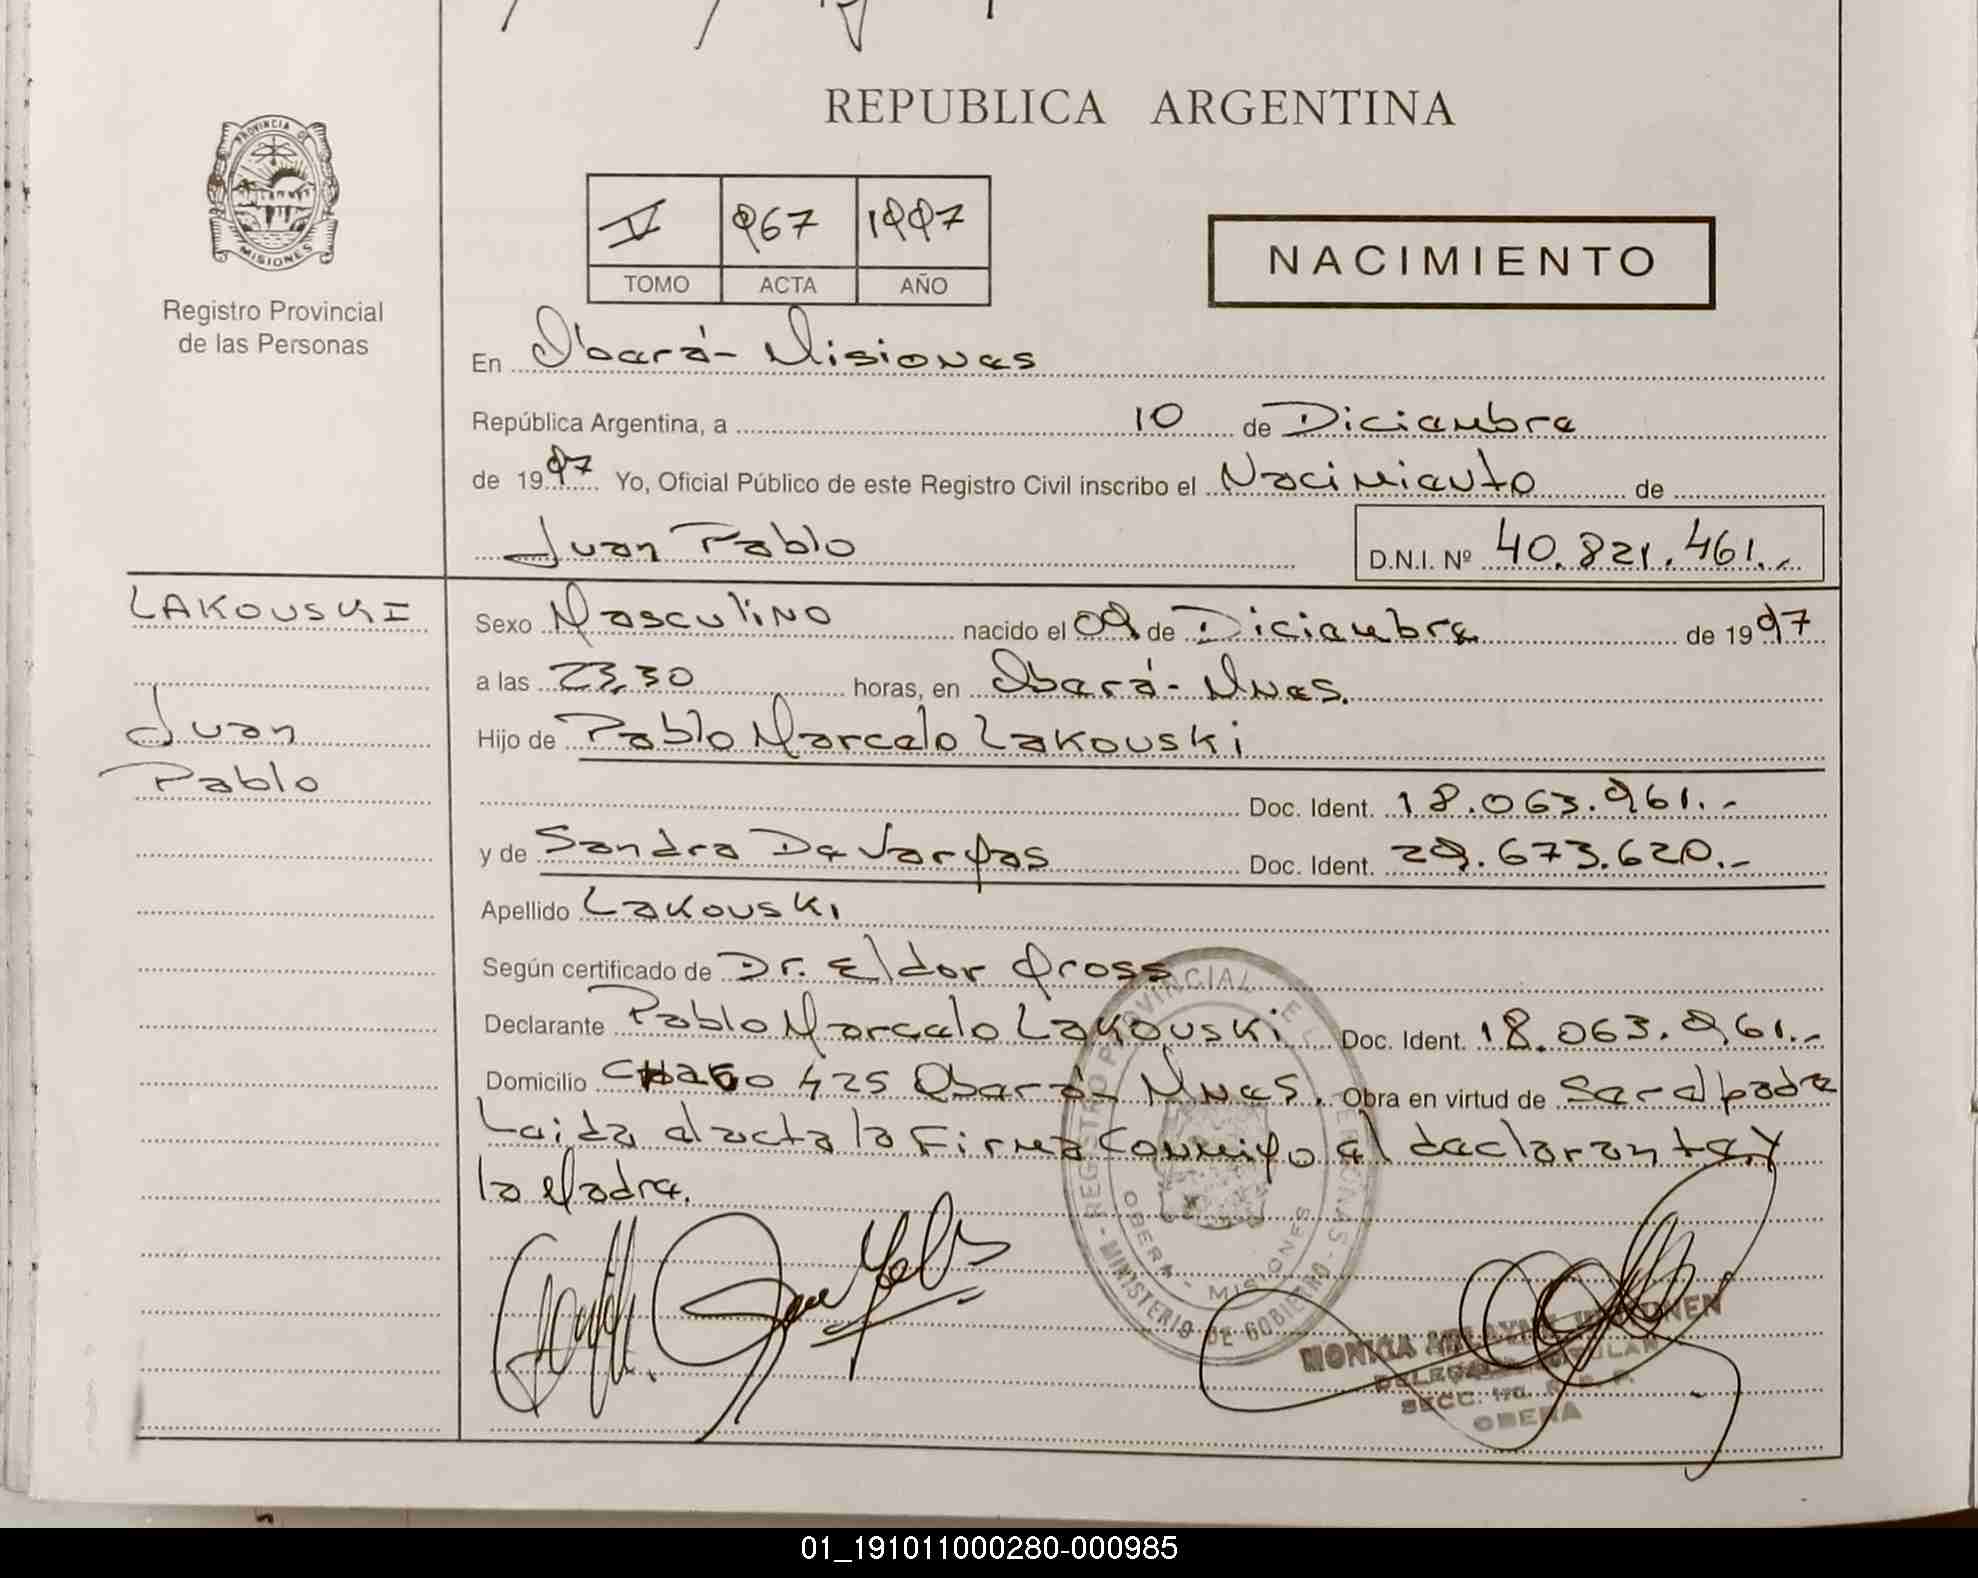 REPUBLICA ARGENTINA
PROVINCIA DE
MISIONES
Registro Provincial
de las Personas
V 967 1997
TOMO ACTA AÑO
NACIMIENTO
En Oberá - Misiones
República Argentina, a 10 de Diciembre
de 1997 Yo, Oficial Público de este Registro Civil inscribo el Nacimiento de
Juan Pablo D.N.I. Nº 40.821.461.-
LAKOUSKI
Juan
Pablo
Sexo Masculino nacido el 09 de Diciembre de 1997
a las 23,30 horas, en Oberá - Mnes.
Hijo de Pablo Marcelo Lakouski
Doc. Ident. 18.063.961.-
y de Sandra De Vargas Doc. Ident. 29.673.620.-
Apellido Lakouski
Según certificado de Dr. Eldor Gross
Declarante Pablo Marcelo Lakouski Doc. Ident. 18.063.961.-
Domicilio 425 Oberá - Mnes. Obra en virtud de Ser el padre
Leida el acta la Firma Conmigo el declarante y
la Madre.
REGISTRO PROVINCIAL DE LAS PERSONAS - MINISTERIO DE GOBIERNO -
OBERA - MISIONES
SECC. 1ra. R. P. P.
OBERA
01_191011000280-000985